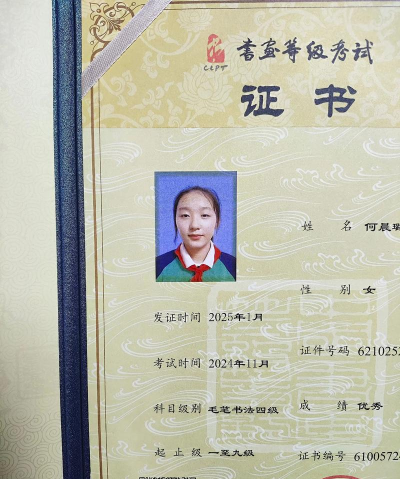 书画等级考试
CCPT
证书
姓名 何晨
性别 女
发证时间 2025年1月
证件号码 6210253
考试时间 2024年11月
科目级别 毛笔书法四级
成绩 优秀
起止级 一至九级
证书编号 6100572